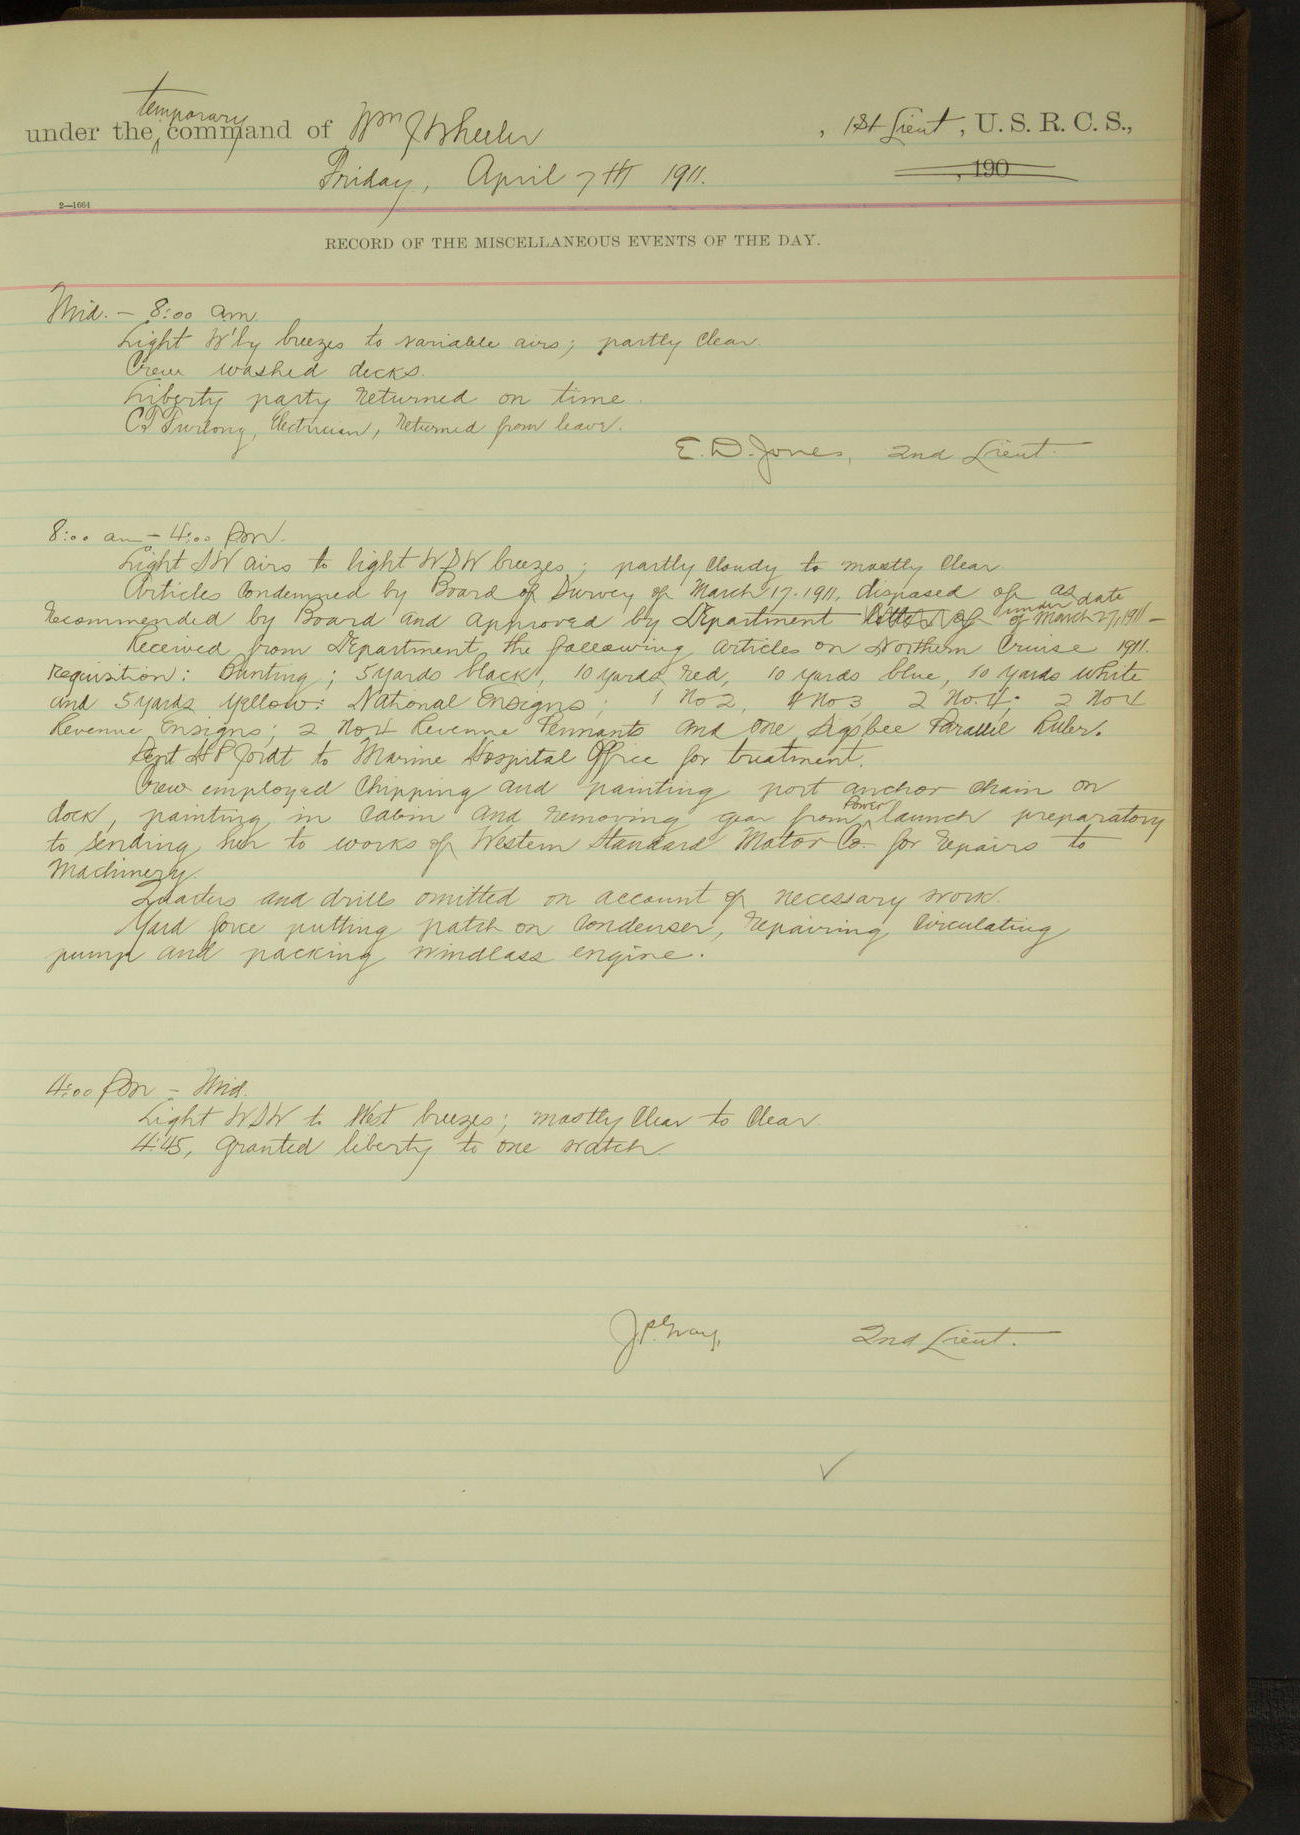 under the temporary command of Wm J Wheeler, 1st Lieut, U. S. R. C. S.,
Friday, April 7th 1911. , 190
2—1664
RECORD OF THE MISCELLANEOUS EVENTS OF THE DAY.
Mid. — 8:00 am
Light W'ly breezes to variable airs; partly clear.
Crew washed decks.
Liberty party returned on time.
Furlong, Electrician, returned from leave.
E. D. Jones, 2nd Lieut.
8:00 am — 4:00 pm.
Light SW airs to light WSW breezes; partly cloudy to mostly clear
Articles condemned by Board of Survey of March 17-1911, disposed of as
recommended by Board and approved by Department under date of March 27, 1911 —
Received from Department the following articles on Northern Cruise 1911.
requisition: Bunting; 5 yards black, 10 yards red, 10 yards blue, 10 yards white
and 5 yards yellow: National Ensigns; 1 No 2, 4 No 3, 2 No. 4; 2 No 4
Revenue Ensigns; 2 No 4 Revenue Pennants and one Sigsbee Parallel Ruler.
Sent to Marine Hospital Office for treatment.
Crew employed chipping and painting port anchor chain on
dock, painting in cabin and removing gear from Power launch preparatory
to sending her to works of Western Standard Motor Co. for repairs to
machinery.
Quarters and drills omitted on account of necessary work.
Yard force putting patch on condenser, repairing circulating
pump and packing windlass engine.
4:00 pm — Mid.
Light WSW to West breezes; mostly clear to clear.
4:45, Granted liberty to one watch.
J P Gray, 2nd Lieut.